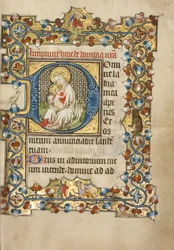 Incipiunt hore de domina nr̄a
Domi
ne la
bia
mea
aperi
es
Et os
meum annunciabit laude
tuam
Deus in adiutorium me
um intende domine ad ad